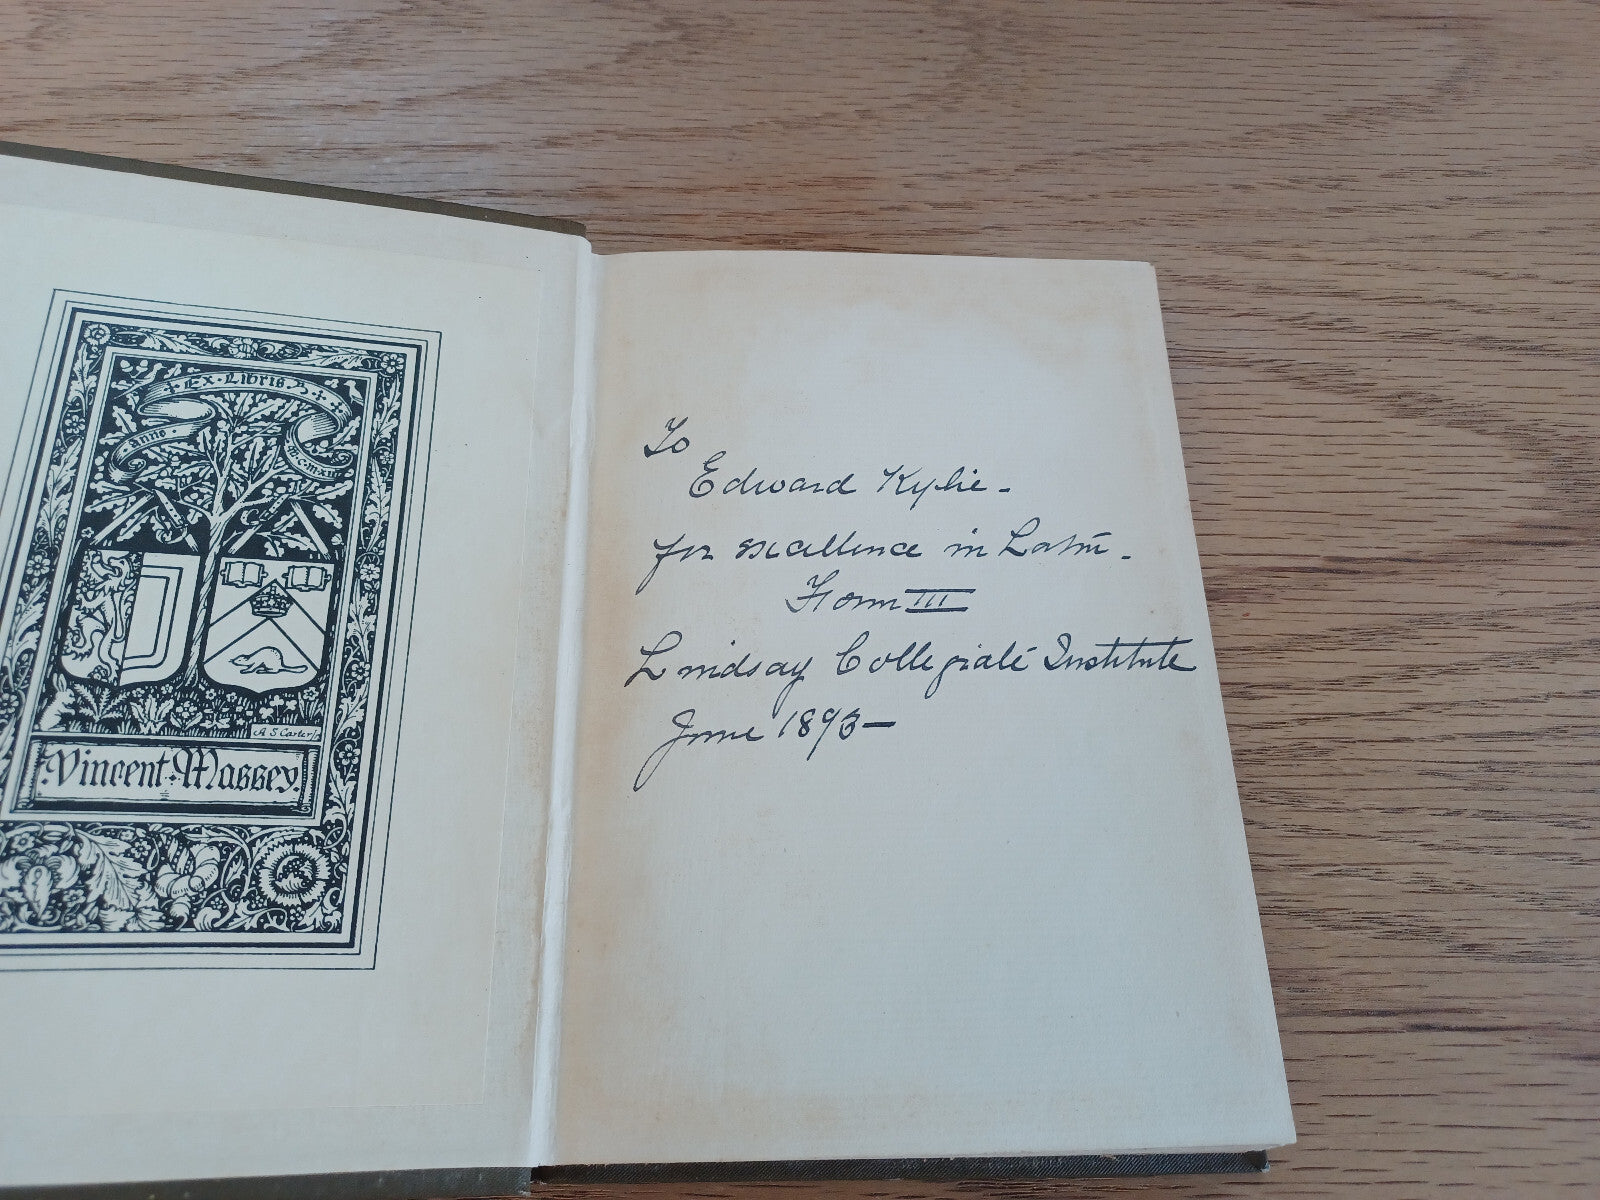 Ex · Libris
Anno ·
A S Carter
Vincent · Massey.
To
Edward Kylie -
for excellence in Latin -
Form III
Lindsay Collegiate Institute
June 1893 -